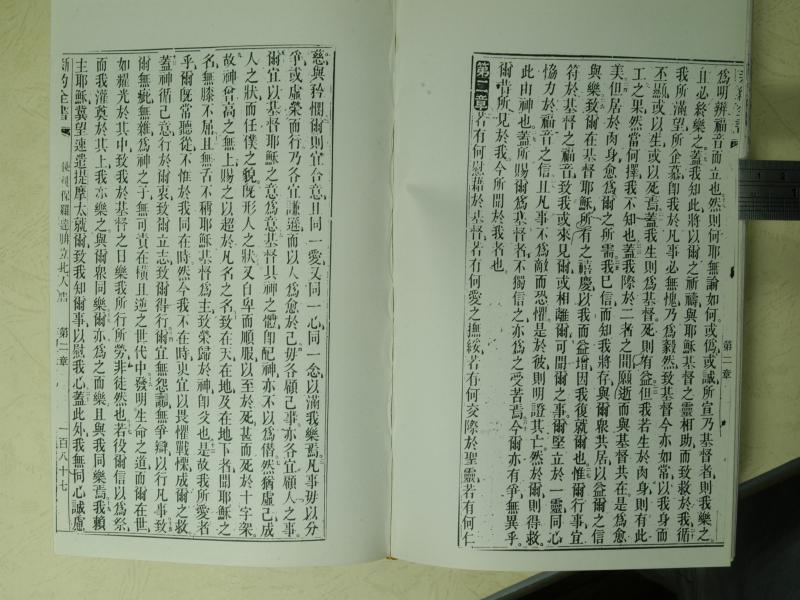 爲明辨福音而立也然則何耶無論如何或僞或誠所宣乃基督者則我樂之
且必終樂之蓋我知此將以爾之祈禱與耶穌基督之靈相助而致救於我循
我所滿望所企慕卽我於凡事必無愧乃爲毅然致基督今亦如常以我身而
丕顯或以生或以死焉蓋我生則爲基督死則有益但我若生於肉身則有此
工之果然當何擇我不知也蓋我際於二者之間願逝而與基督共在是爲愈
美但居於肉身愈爲爾之所需我已信而知我將存與爾衆共居以益爾之信
與樂致爾在基督耶穌所有之禧慶以我而益增因我復就爾也惟爾行事宜
符於基督之福音致我或來見爾或相離爾可聞爾之事爾堅立於一靈同心
協力於福音之信且凡事不爲敵而恐懼是於彼則明證其亡然於爾則得救
此由神也蓋所賜爾爲基督者不獨信之亦爲之受苦焉今爾亦有爭無異乎
爾昔所見於我今所聞於我者也
第二章 若有何慰藉於基督若有何愛之撫綏若有何交際於聖靈若有何仁
第二章
慈與矜憫爾則宜合意且同一愛又同一心同一念以滿我樂焉凡事毋以分
爭或虛榮而行乃各宜謙遜而以人爲愈於己毋各顧己事亦各宜顧人之事
爾宜以基督耶穌之意爲意基督具神之體卽配神亦不以爲僭然猶虛己成
人之狀而任僕之貌旣形人之狀又自卑而順服以至於死甚而死於十字架
故神曾高之無上賜之以超於凡名之名致在天在地及在地下者聞耶穌之
名無膝不屈且無舌不稱耶穌基督爲主致榮歸於神卽父也是故我所愛者
乎爾旣常聽從不惟於我同在時然今我不在時更宜以畏懼戰慄成爾之救
蓋神循己意行於爾衷致爾立志致爾得行爾宜無怨讟無爭辯以行凡事致
爾無疵無雜爲神之子無可責在橫且逆之世代中發明生命之道而爾在世
如耀光於其中致我於基督之日樂我所行所勞非徒然也若役爾信以爲祭
而我灌奠於其上我亦樂之與爾衆同樂爾亦爲之而樂且與我同樂焉我賴
主耶穌冀望速遣提摩太就爾致我知爾事以慰我心蓋此外我無同心誠慮
新約全書 使徒保羅達腓立比人書 第二章 一百八十七